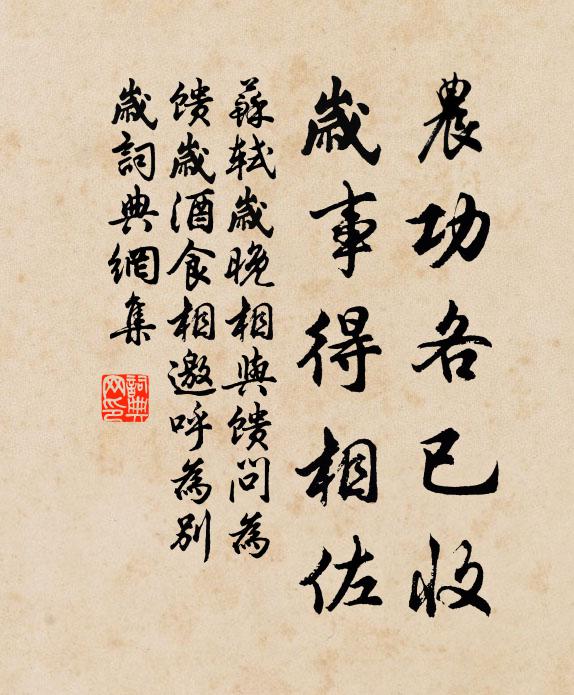 農功各已收
歲事得相佐
蘇軾歲晚相與馈問為
馈歲酒食相邀呼為別
歲詞典網集
詞典
网印